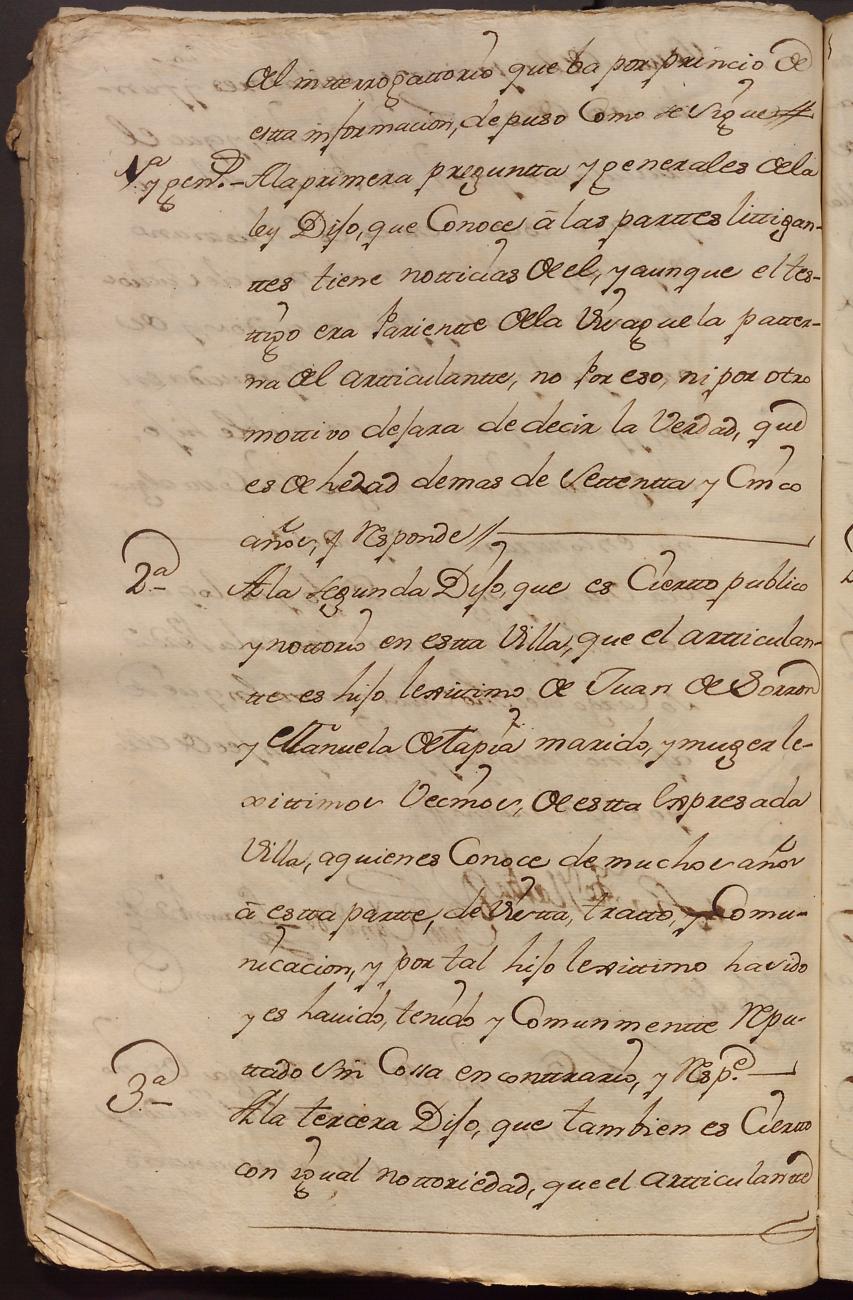 del interrogattorio que ba por princio de
estta informacion, depuso Como se Sigue
1ª y gen.s – A la primera preguntta y generales de la
ley Dijo, que Conoce â las parttes littigan-
ttes tiene notticias de el, y aunque el tes-
ttigo era Parientte de la Visaguela patter-
na del artticulantte, no Por eso, ni por otro
mottivo dejara de decir la Verdad, que
es de hedad demas de Settentta y Cinco
años, y Responde //
2ª A la segunda Dijo, que es Ciertto publico
y nottorio en estta Villa, que el artticulan-
tte es hijo lexittimo de Juan de Sorron
y Manuela de Tapia marido, y muger le-
xittimos Vecinos, de estta Expresada
Villa, a quienes Conoce de muchos años
â estta partte, de Vistta, tratto, y Comu-
nicacion, y por tal hijo lexittimo ha sido
y es hauido, tenido y Comunmentte Repu-
ttado sin Cossa en conttrario, y Resp.e
3ª A la tercera Dijo, que tambien es Ciertto
con igual nottoriedad, que el artticulantte